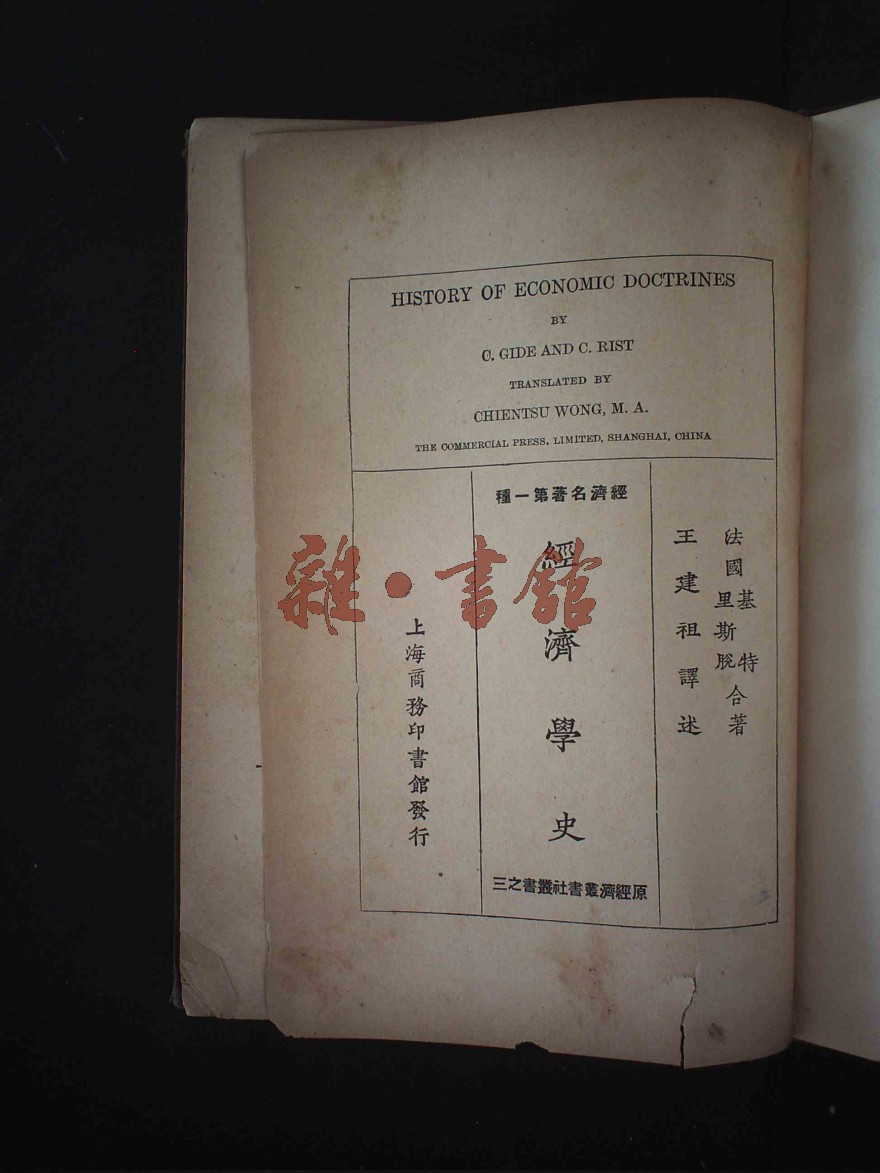 HISTORY OF ECONOMIC DOCTRINES
BY
C. GIDE AND C. RIST
TRANSLATED BY
CHIENTSU WONG, M. A.
THE COMMERCIAL PRESS, LIMITED, SHANGHAI, CHINA
法國基特里斯脫合著
王建祖譯述
經濟名著第一種
經濟學史
原經濟叢書社叢書之三
上海商務印書館發行
雜·書館